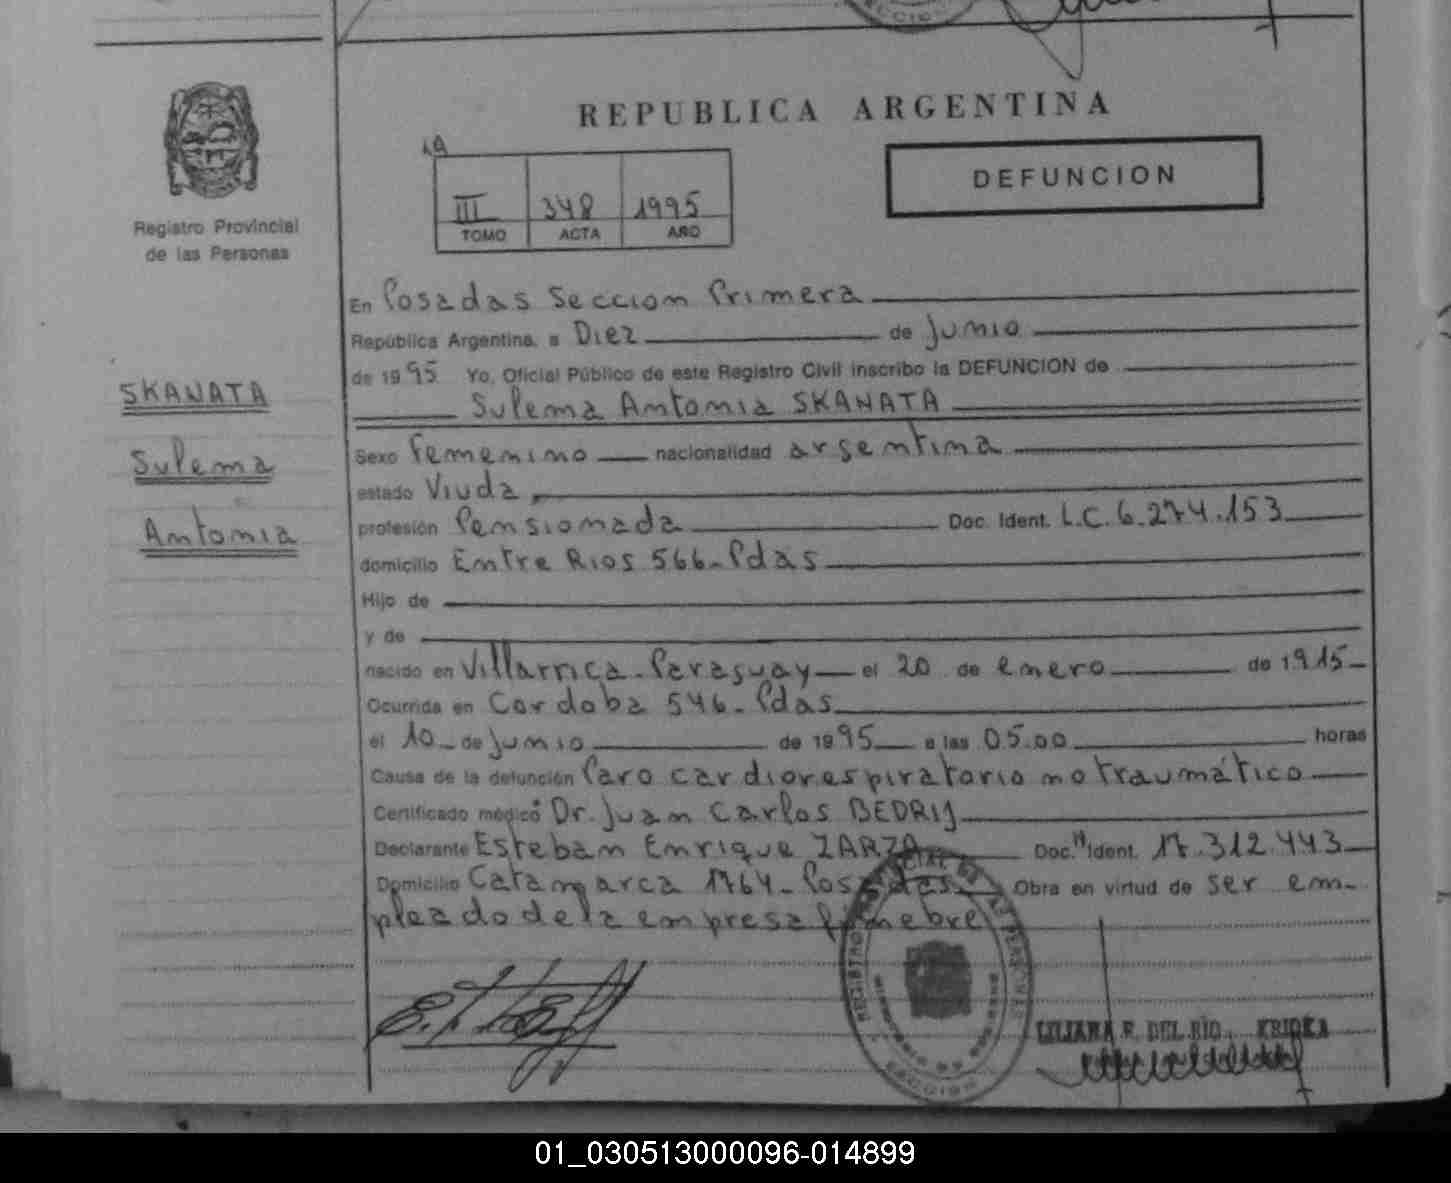 REPUBLICA ARGENTINA
DEFUNCION
III 348 1995
TOMO ACTA AÑO
Registro Provincial
de las Personas
SKANATA
Sulema
Antonia
En Posadas Seccion Primera
República Argentina, a Diez de Junio
de 1995 Yo, Oficial Público de este Registro Civil inscribo la DEFUNCION de
Sulema Antonia SKANATA
Sexo femenino nacionalidad argentina
estado Viuda
profesión Pensionada Doc. Ident. L.C. 6.274.153
domicilio Entre Rios 566 - Pdas
Hijo de
y de
nacido en Villarrica - Paraguay el 20 de enero de 1915
Ocurrida en Cordoba 546 - Pdas
el 10 de junio de 1995 a las 05.00 horas
Causa de la defunción Paro cardiorespiratorio no traumático
Certificado médico Dr. Juan Carlos BEDRIJ
Declarante Esteban Enrique ZARZA Doc. Ident. 17.312.443
Domicilio Catamarca 1764 - Posadas Obra en virtud de ser em-
pleado de la empresa funebre
LILIANA E. DEL RIO
01_030513000096-014899